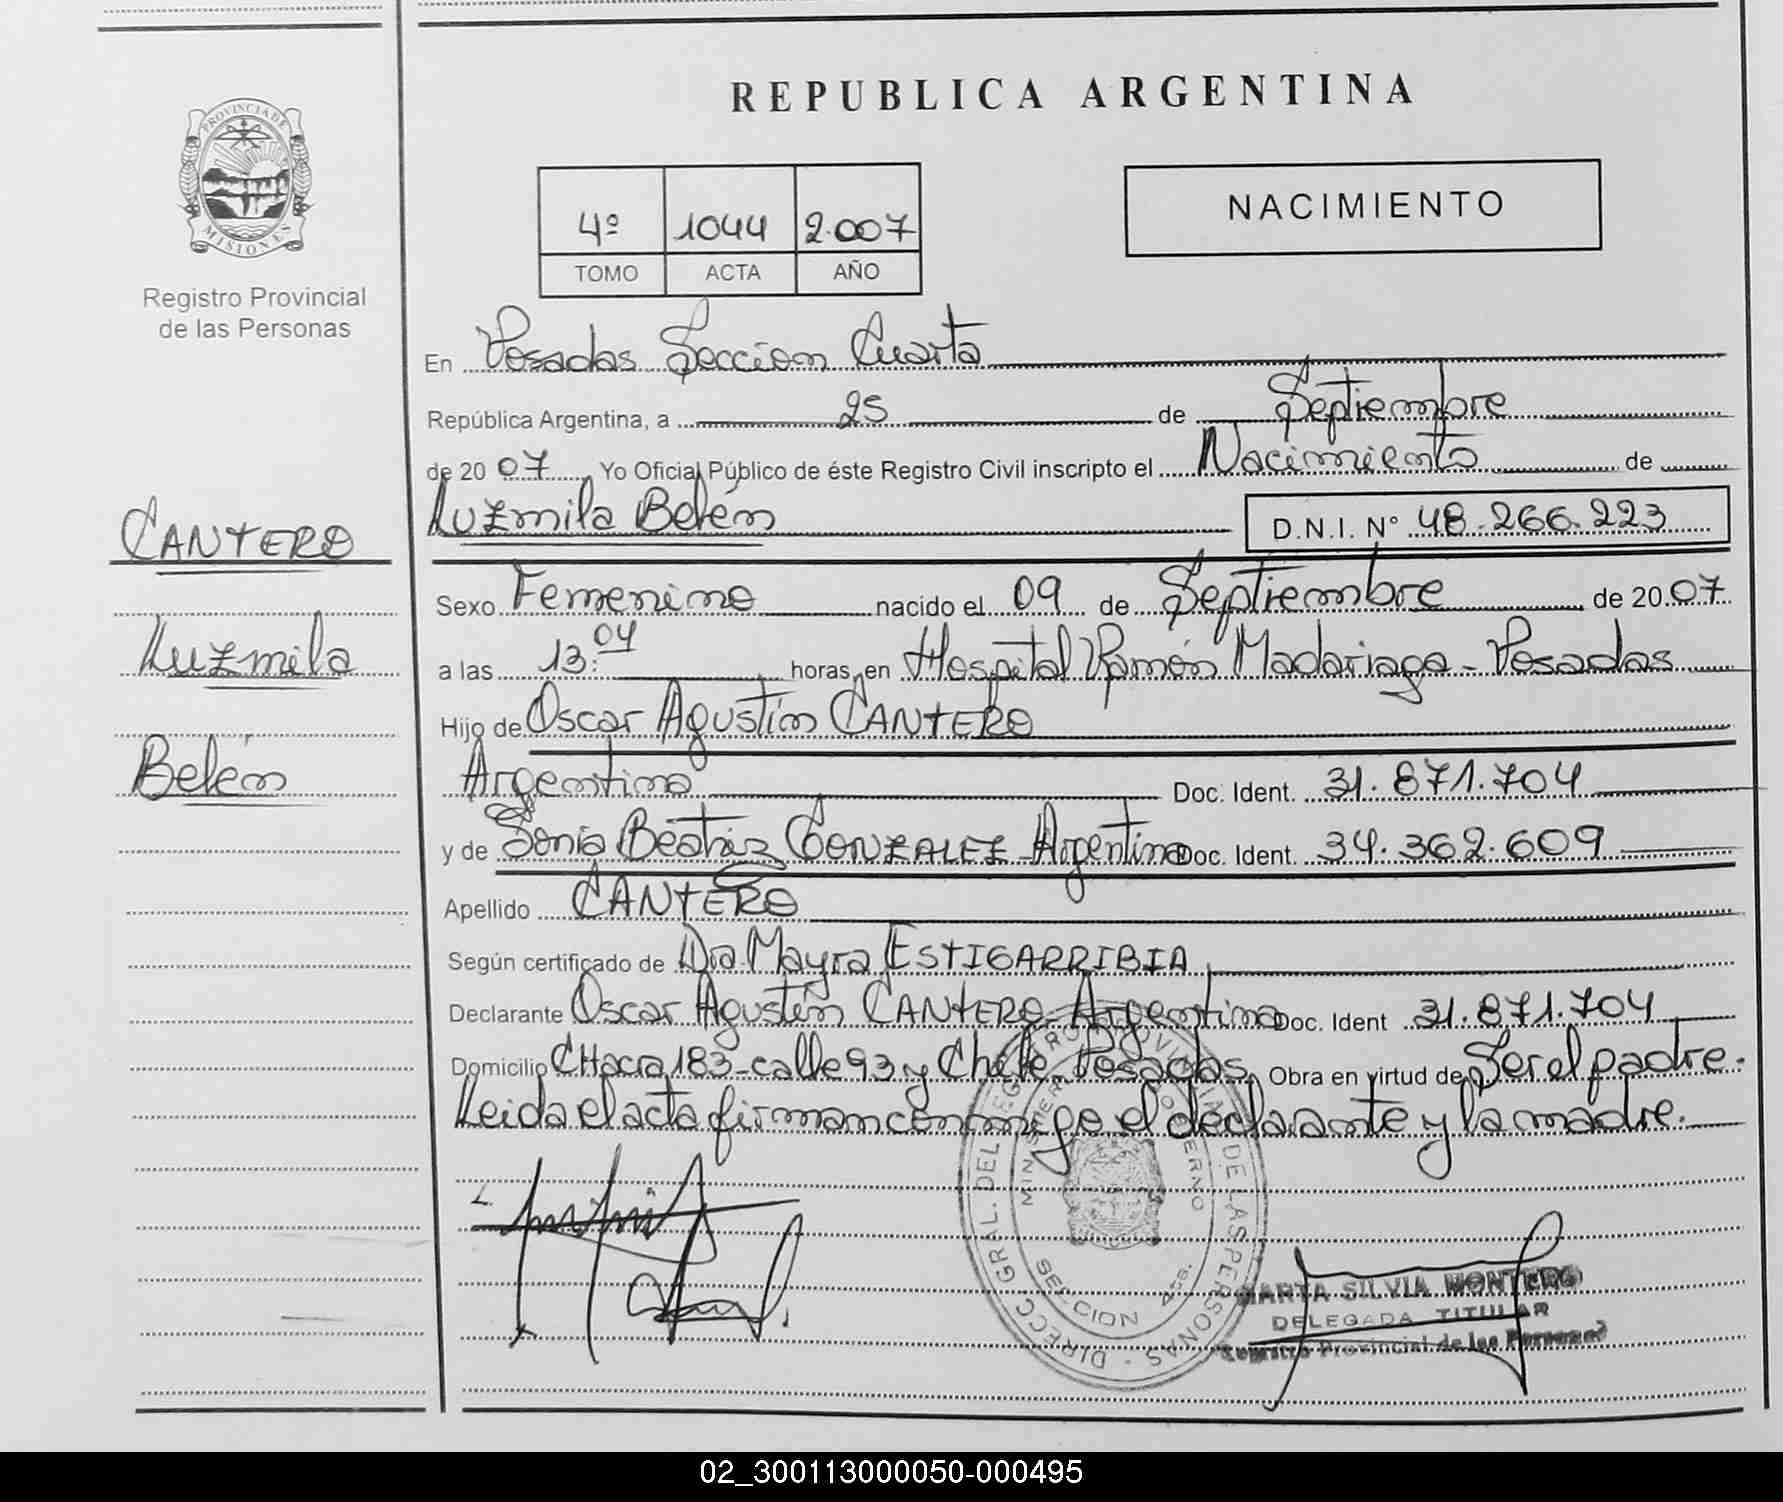 REPUBLICA ARGENTINA
PROVINCIA DE MISIONES
Registro Provincial
de las Personas
4º 1044 2.007
TOMO ACTA AÑO
NACIMIENTO
En Posadas Seccion Cuarta
República Argentina, a 25 de Septiembre
de 20 07 Yo Oficial Público de éste Registro Civil inscripto el Nacimiento de
Luzmila Belén D.N.I. Nº 48.266.223
CANTERO
Luzmila
Belén
Sexo Femenino nacido el 09 de Septiembre de 20 07
a las 13:04 horas, en Hospital Ramón Madariaga - Posadas
Hijo de Oscar Agustín CANTERO
Argentino Doc. Ident. 31.871.704
y de Sonia Beatriz GONZALEZ - Argentina Doc. Ident. 34.362.609
Apellido CANTERO
Según certificado de Dra. Mayra ESTIGARRIBIA
Declarante Oscar Agustín CANTERO - Argentino Doc. Ident 31.871.704
Domicilio CHacra 183 - calle 93 y Chile - Posadas Obra en virtud de Ser el padre.
Leida el acta firman conmigo el declarante y la madre.
DIRECC GRAL. DEL REGISTRO PROVINCIAL DE LAS PERSONAS
MINISTERIO GOBIERNO
SECCION 4ta.
MARTA SILVIA MONTERO
DELEGADA TITULAR
Registro Provincial de las Personas
02_300113000050-000495